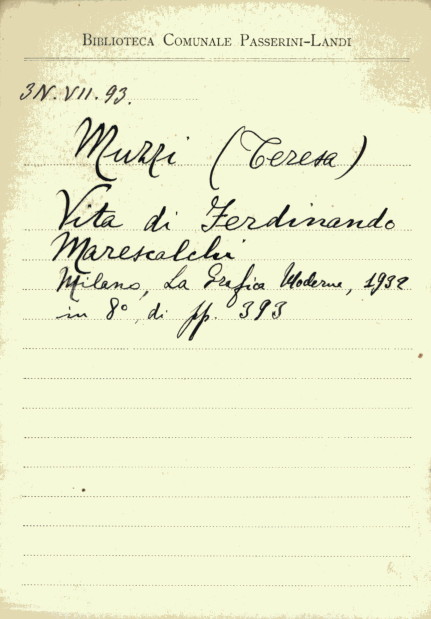 BIBLIOTECA COMUNALE PASSERINI-LANDI
3N.VII.93.
Muzzi (Teresa)
Vita di Ferdinando
Marescalchi
Milano, La Grafica Moderna, 1932
in 8° di pp. 393